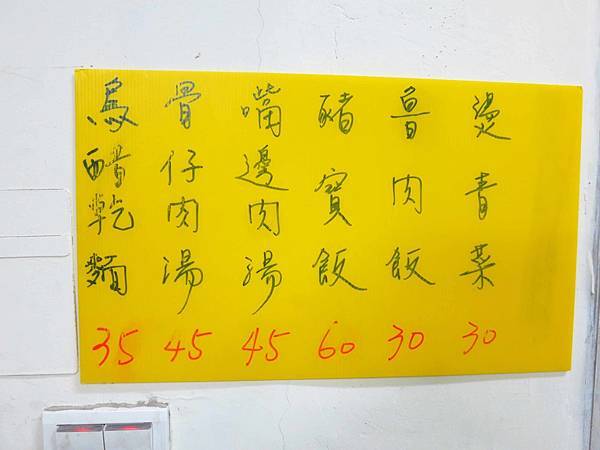 燙青菜 30
魯肉飯 30
豬寶飯 60
嘴邊肉湯 45
骨仔肉湯 45
烏醋乾麵 35